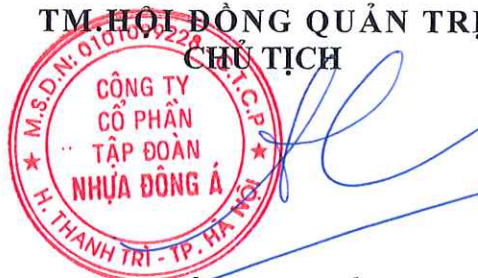 TM.HỘI ĐỒNG QUẢN TRỊ
CHỦ TỊCH
M.S.D.N: C.T.C.P
CÔNG TY
CỔ PHẦN
TẬP ĐOÀN
NHỰA ĐÔNG Á
H. THANH TRÌ - TP. HÀ NỘI